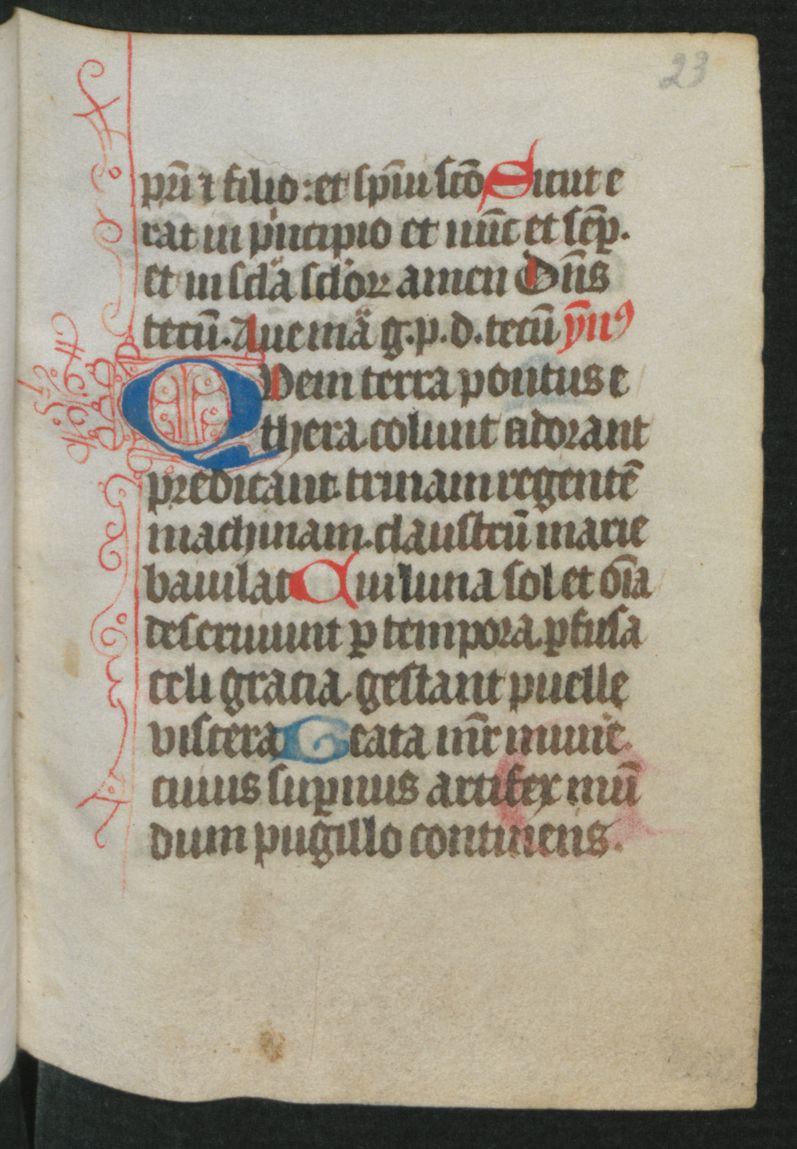 23
pr̄i ⁊ filio : et sp̄iu scō Sicut e
rat in pͥncipio et nūc et sēp.
et in scl̄a scl̄oꝝ amen Dn̄s
tecū. Aue mā g. p. d. tecū ym̄nꝰ
QVem terra pontus e
thera. colunt adorant
predicant. trinam regentē
machinam. claustrū marie
baiulat Qui luna sol et om̄ia
deseruiunt ꝑ tempora. ꝑfusa
celi gracia. gestant puelle
viscera Beata mr̄ munie
cuius suꝑnus artifex mū
dum pugillo continens.